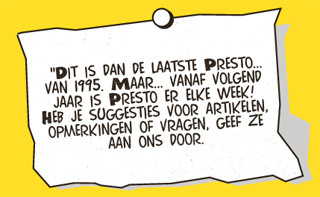 "DIT IS DAN DE LAATSTE PRESTO...
VAN 1995. MAAR... VANAF VOLGEND
JAAR IS PRESTO ER ELKE WEEK!
HEB JE SUGGESTIES VOOR ARTIKELEN,
OPMERKINGEN OF VRAGEN, GEEF ZE
AAN ONS DOOR.